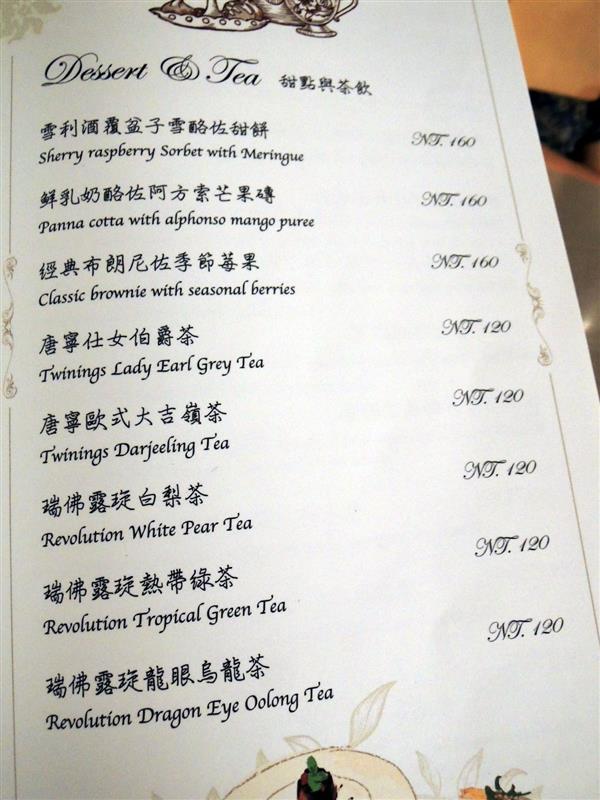 Dessert & Tea 甜點與茶飲
雪利酒覆盆子雪酪佐甜餅 NT. 160
Sherry raspberry Sorbet with Meringue
鮮乳奶酪佐阿方索芒果磚 NT. 160
Panna cotta with alphonso mango puree
經典布朗尼佐季節莓果 NT. 160
Classic brownie with seasonal berries
唐寧仕女伯爵茶 NT. 120
Twinings Lady Earl Grey Tea
唐寧歐式大吉嶺茶 NT. 120
Twinings Darjeeling Tea
瑞佛露琁白梨茶 NT. 120
Revolution White Pear Tea
瑞佛露琁熱帶綠茶 NT. 120
Revolution Tropical Green Tea
瑞佛露琁龍眼烏龍茶 NT. 120
Revolution Dragon Eye Oolong Tea